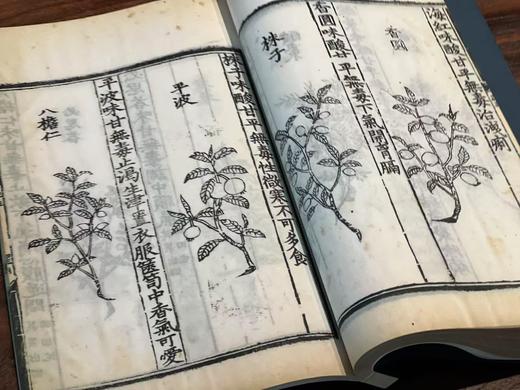 海紅味酸甘平無毒治洩痢
香圓
香圓味酸甘平無毒下氣開胷膈
株子
株子味酸甘平無毒性微寒不可多食
平波
平波味甘無毒止渴生津置衣服篋笥中香氣可愛
八檐仁